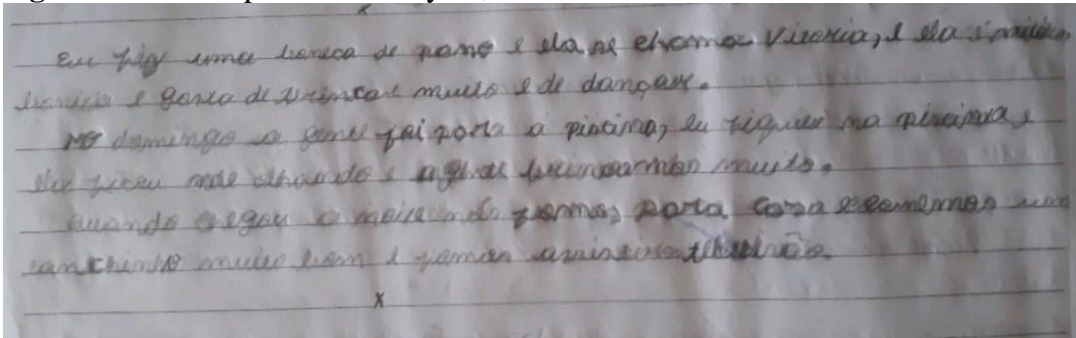 Eu fiz uma boneca de pano e ela se chama Vitoria, e ela é muito
bonita e gosta de brincar muito e de dançar.
No domingo a gente fai para a pistina, eu fiquei na piscina e
ela ficou me olhando e a gente brincamos muito.
Quando chegou a noite nós fomos para casa e comemos um
lanchinho muito bom e fomos assistir televisão.
x